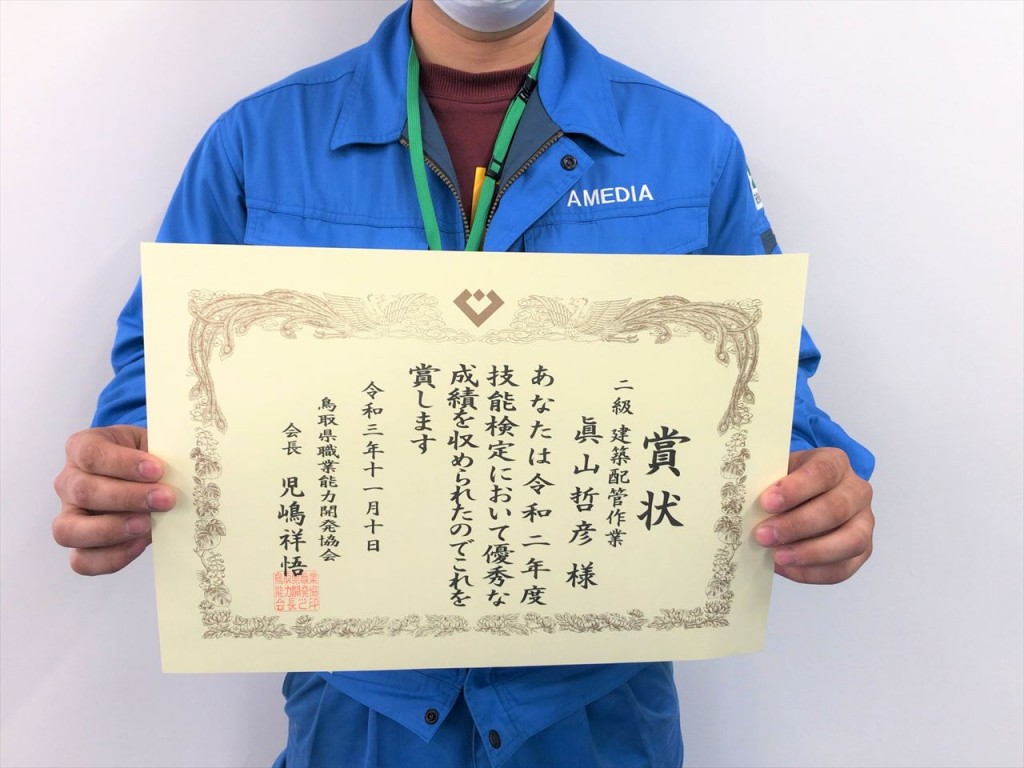 AMEDIA
賞状
二級 建築配管作業
眞山哲彦 様
あなたは令和二年度
技能検定において優秀な
成績を収められたのでこれを
賞します
令和三年十一月十日
鳥取県職業能力開発協会
会長 児嶋祥悟